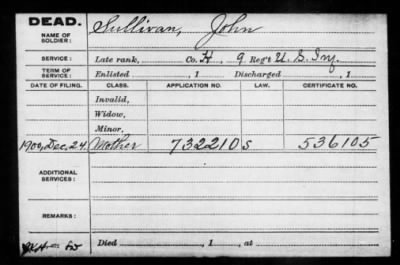 DEAD.
NAME OF SOLDIER: Sullivan, John
SERVICE: Late rank, Co. H, 9 Reg't U.S. Inf.
TERM OF SERVICE: Enlisted , 1 Discharged , 1
DATE OF FILING. CLASS. APPLICATION NO. LAW. CERTIFICATE NO.
Invalid,
Widow,
Minor,
1900, Dec. 24. Mother 732210 S 536105
ADDITIONAL SERVICES:
REMARKS:
Died , 1 , at